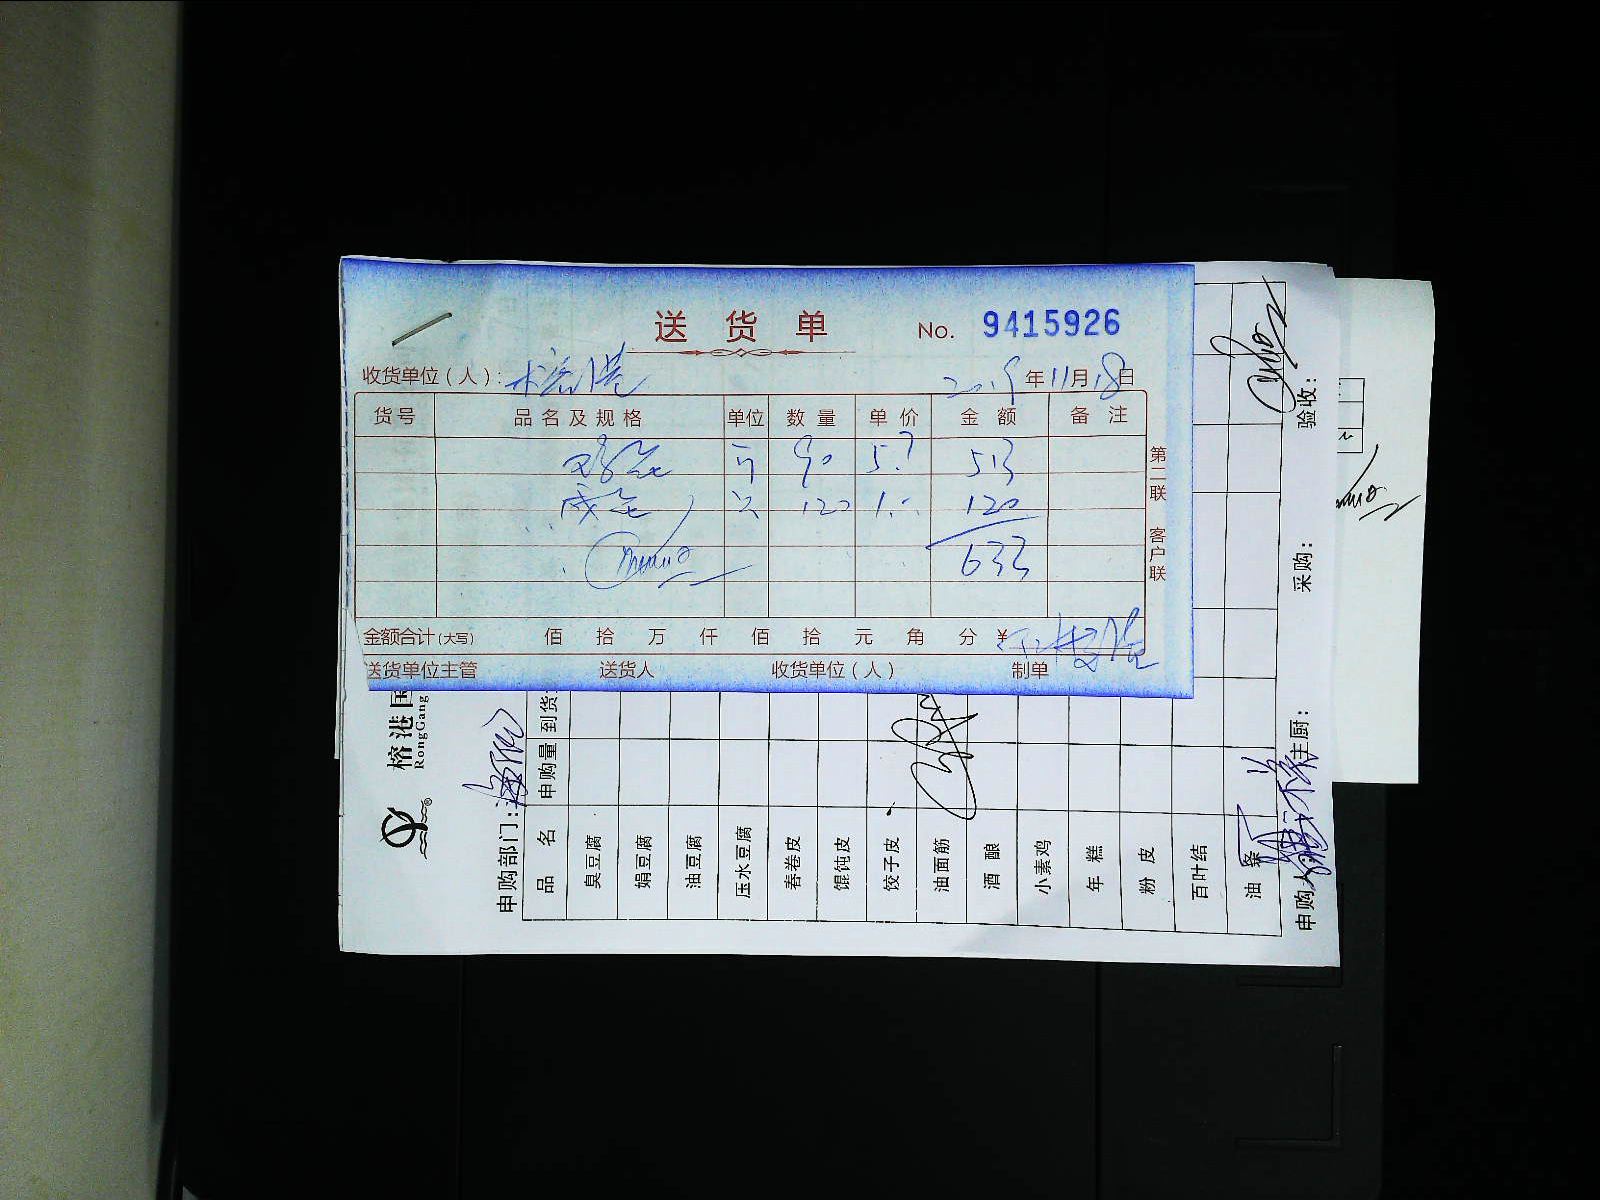 送货单 No. 9415926
收货单位(人): 榕港 2019年11月18日
货号 品名及规格 单位 数量 单价 金额 备注
90 5.7 513
只 120 1.- 120
633
第二联 客户联
金额合计(大写) 佰 拾 万 仟 佰 拾 元 角 分 ¥
送货单位主管 送货人 收货单位(人) 制单
榕港国
RongGang
申购部门:
品名 申购量 到货
臭豆腐
娟豆腐
油豆腐
压水豆腐
春卷皮
馄饨皮
饺子皮
油面筋
酒酿
小素鸡
年糕
粉皮
百叶结
油
申购人 主厨: 采购: 验收: